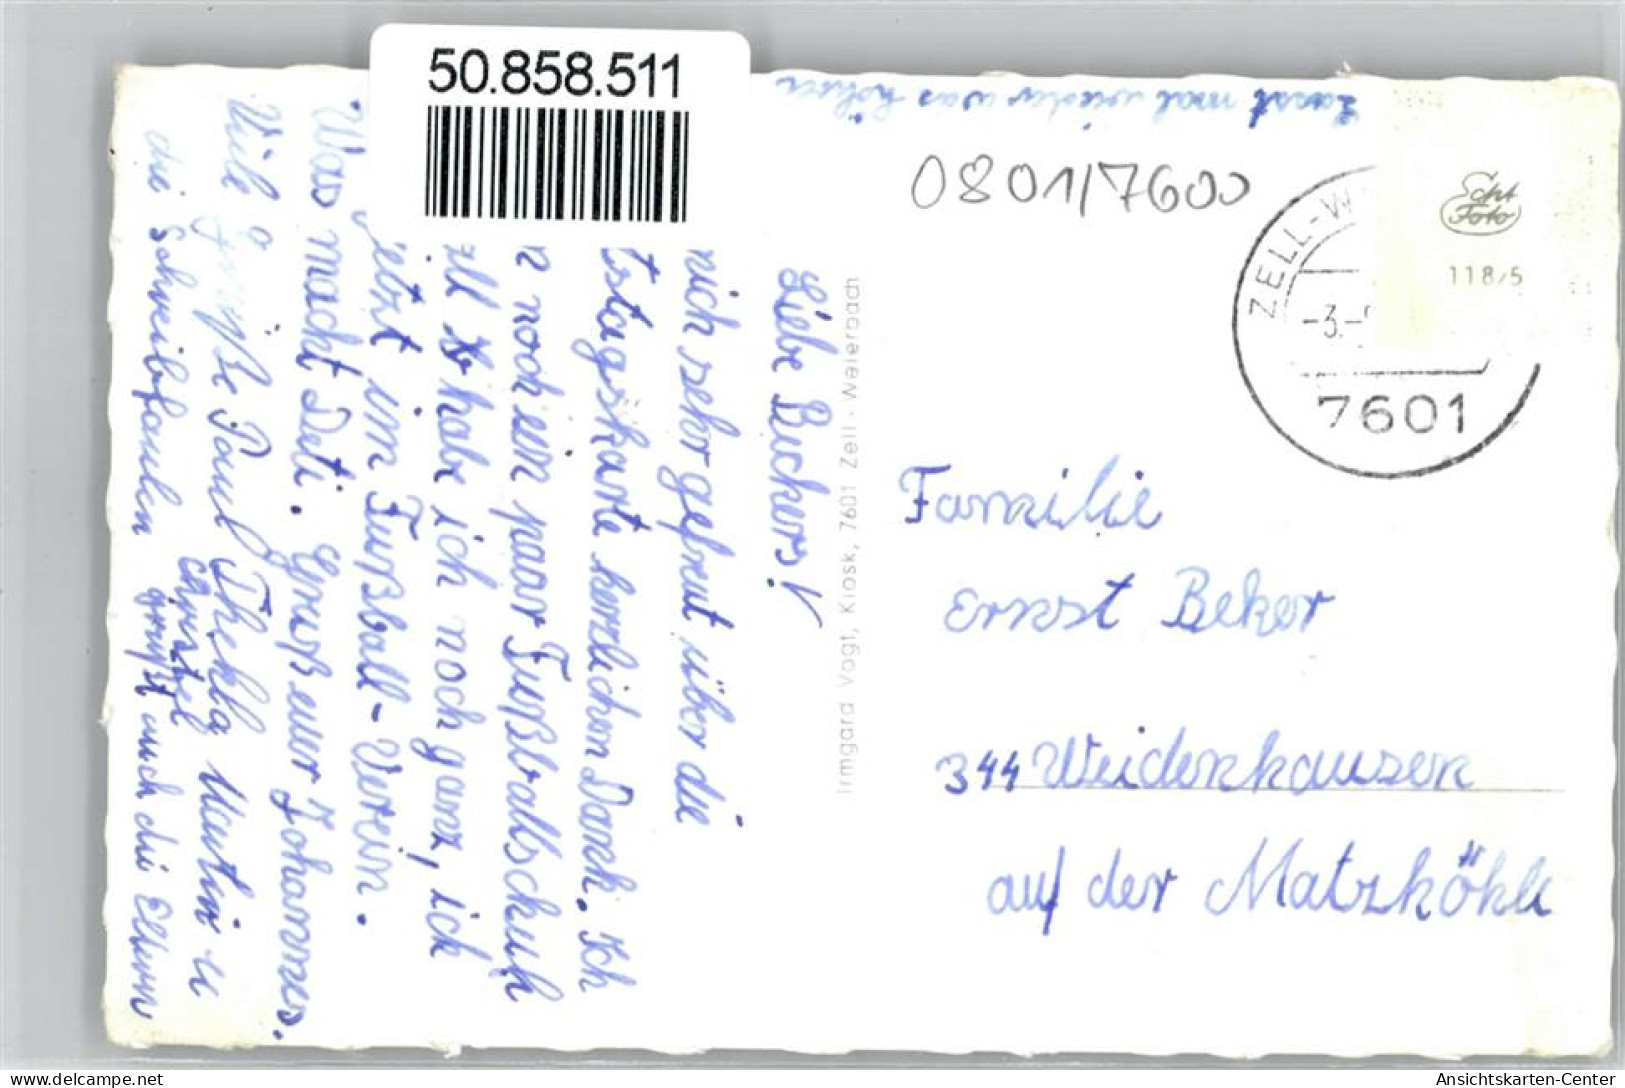 50.858.511
Lasst mal wieder was hören
0801/7600
ZELL-W
-3.-
7601
Echt
Foto
118/5
Liebe Beckers!
mich sehr gefreut über die
tstagskarte herzlichen Dank. Ich
n noch ein paar Fußballschuh
ll habe ich noch ganz, ich
jetzt im Fußball-Verein.
Was macht Deti. Gruß euer Johannes.
Viele Grüße Paul Thekla Martin u
Christel
die Schreibfaulen grüßt auch die Eltern
Irmgard Vogt, Kiosk, 7601 Zell-Weierbach
Familie
Ernst Beker
344 Weidenhausen
auf der Matzköhle
delcampe.net
Ansichtskarten-Center